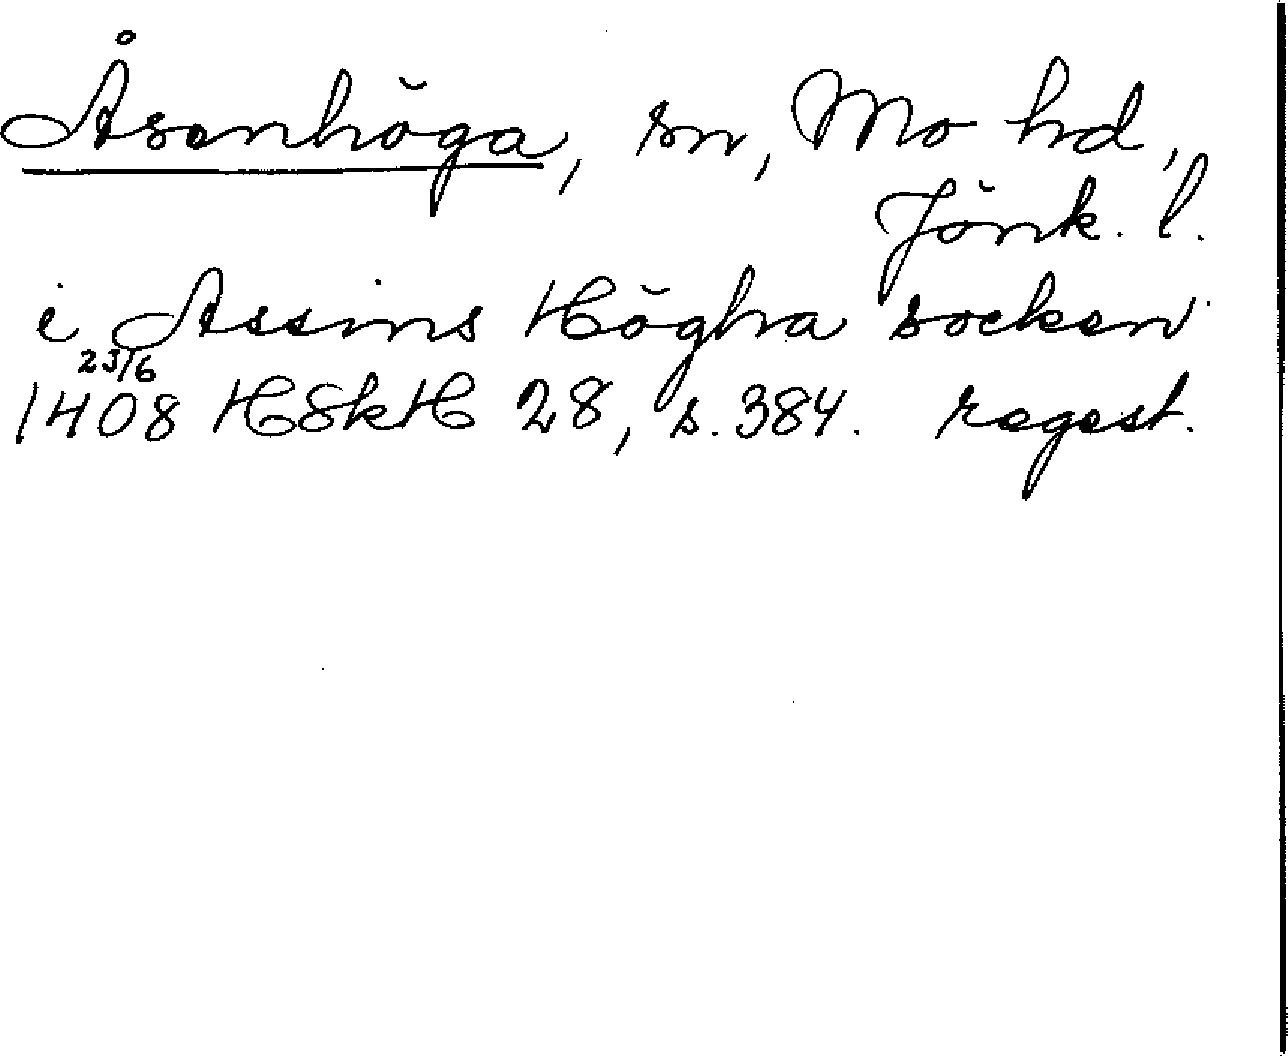 Åsenhöga, sn, Mo hd,
Jönk. l.
i Assins Högha socken
23/6
1408 HSkH 28, s. 384. regest.